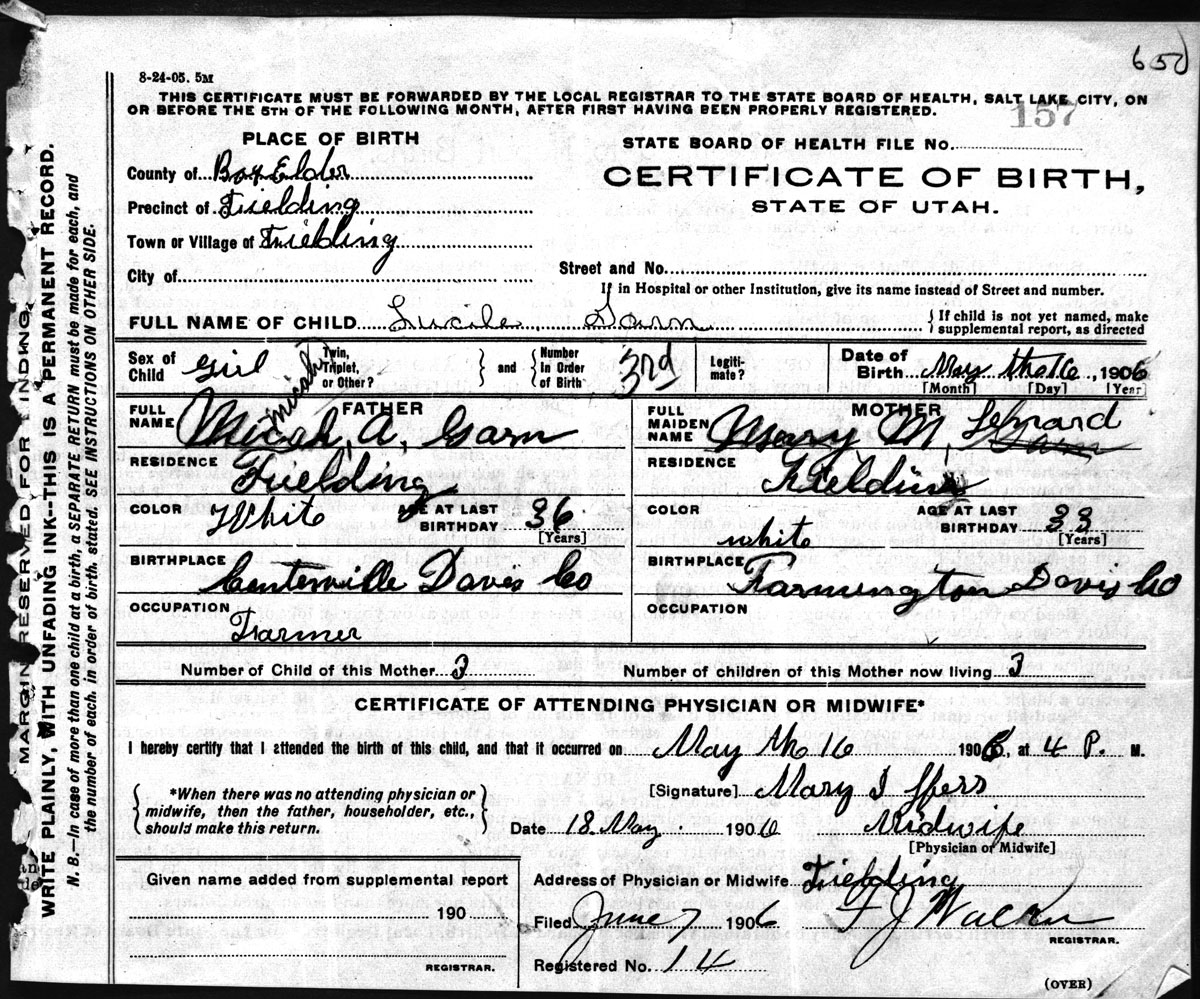 650
8-24-05. 5M
THIS CERTIFICATE MUST BE FORWARDED BY THE LOCAL REGISTRAR TO THE STATE BOARD OF HEALTH, SALT LAKE CITY, ON
OR BEFORE THE 5TH OF THE FOLLOWING MONTH, AFTER FIRST HAVING BEEN PROPERLY REGISTERED.
157
PLACE OF BIRTH
STATE BOARD OF HEALTH FILE No.
County of Box Elder
CERTIFICATE OF BIRTH,
Precinct of Fielding
STATE OF UTAH.
Town or Village of Fielding
City of
Street and No.
If in Hospital or other Institution, give its name instead of Street and number.
FULL NAME OF CHILD Lucile Garn { If child is not yet named, make
supplemental report, as directed
Sex of Child Girl Twin, Triplet, or Other? } and { Number In Order of Birth 3rd Legiti-mate? Date of Birth May the 16, 1906
[Month] [Day] [Year]
FULL NAME FATHER Micah A, Garn
micah
FULL MAIDEN NAME MOTHER Mary M, Garn
RESIDENCE Fielding
RESIDENCE Fielding
COLOR White AGE AT LAST BIRTHDAY 36 [Years]
COLOR white AGE AT LAST BIRTHDAY 33 [Years]
BIRTHPLACE Centerville Davis Co
BIRTHPLACE Farmington Davis Co
OCCUPATION Farmer
OCCUPATION
Number of Child of this Mother 3
Number of children of this Mother now living 3
CERTIFICATE OF ATTENDING PHYSICIAN OR MIDWIFE*
I hereby certify that I attended the birth of this child, and that it occurred on May the 16 1906, at 4 P. M.
*When there was no attending physician or
midwife, then the father, householder, etc.,
should make this return.
[Signature] Mary I
Date 18 May 1906 Midwife
[Physician or Midwife]
Given name added from supplemental report
190
REGISTRAR.
Address of Physician or Midwife Fielding
Filed June 7 1906
REGISTRAR.
Registered No. 14
(OVER)
MARGIN RESERVED FOR BINDING.
WRITE PLAINLY, WITH UNFADING INK--THIS IS A PERMANENT RECORD.
N. B.—In case of more than one child at a birth, a SEPARATE RETURN must be made for each, and
the number of each, in order of birth, stated. SEE INSTRUCTIONS ON OTHER SIDE.